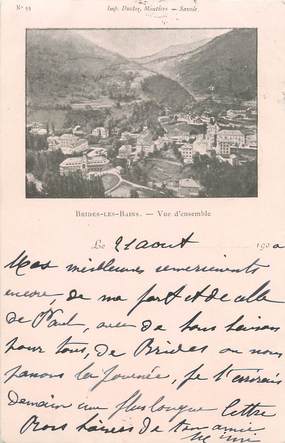 N° 99
Imp. Ducloz, Moutiers — Savoie.
BRIDES-LES-BAINS. — Vue d'ensemble
Le 21 aout 1900
Mes meilleurs remerciements
encore, de ma part et de celle
de Paul, avec de bons baisers
pour tous, de Brides ou nous
passons la journée, je t'écrirais
demain une plus longue lettre
Bons baisers de ton amie